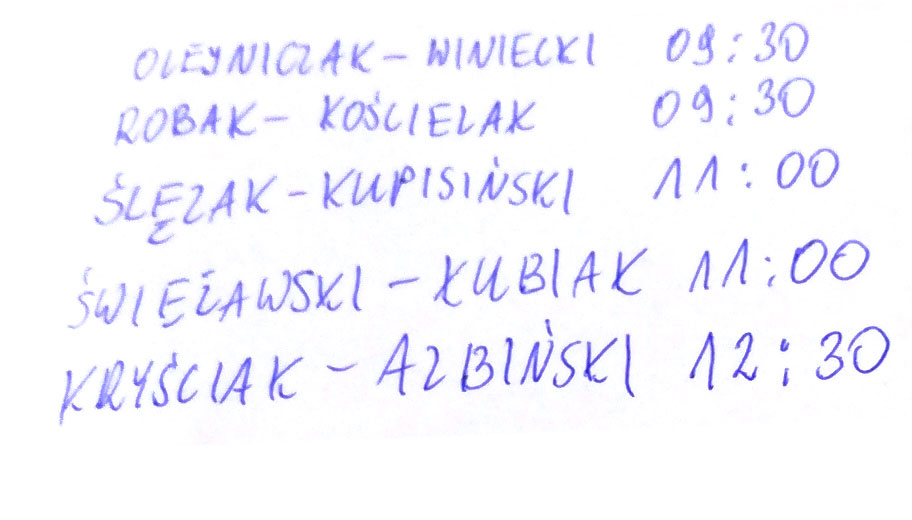 OLEJNICZAK – WINIECKI 09:30
ROBAK – KOŚCIELAK 09:30
ŚLĘZAK – KUPISIŃSKI 11:00
ŚWIĘŻAWSKI – KUBIAK 11:00
KRYŚCIAK – AZBIŃSKI 12:30